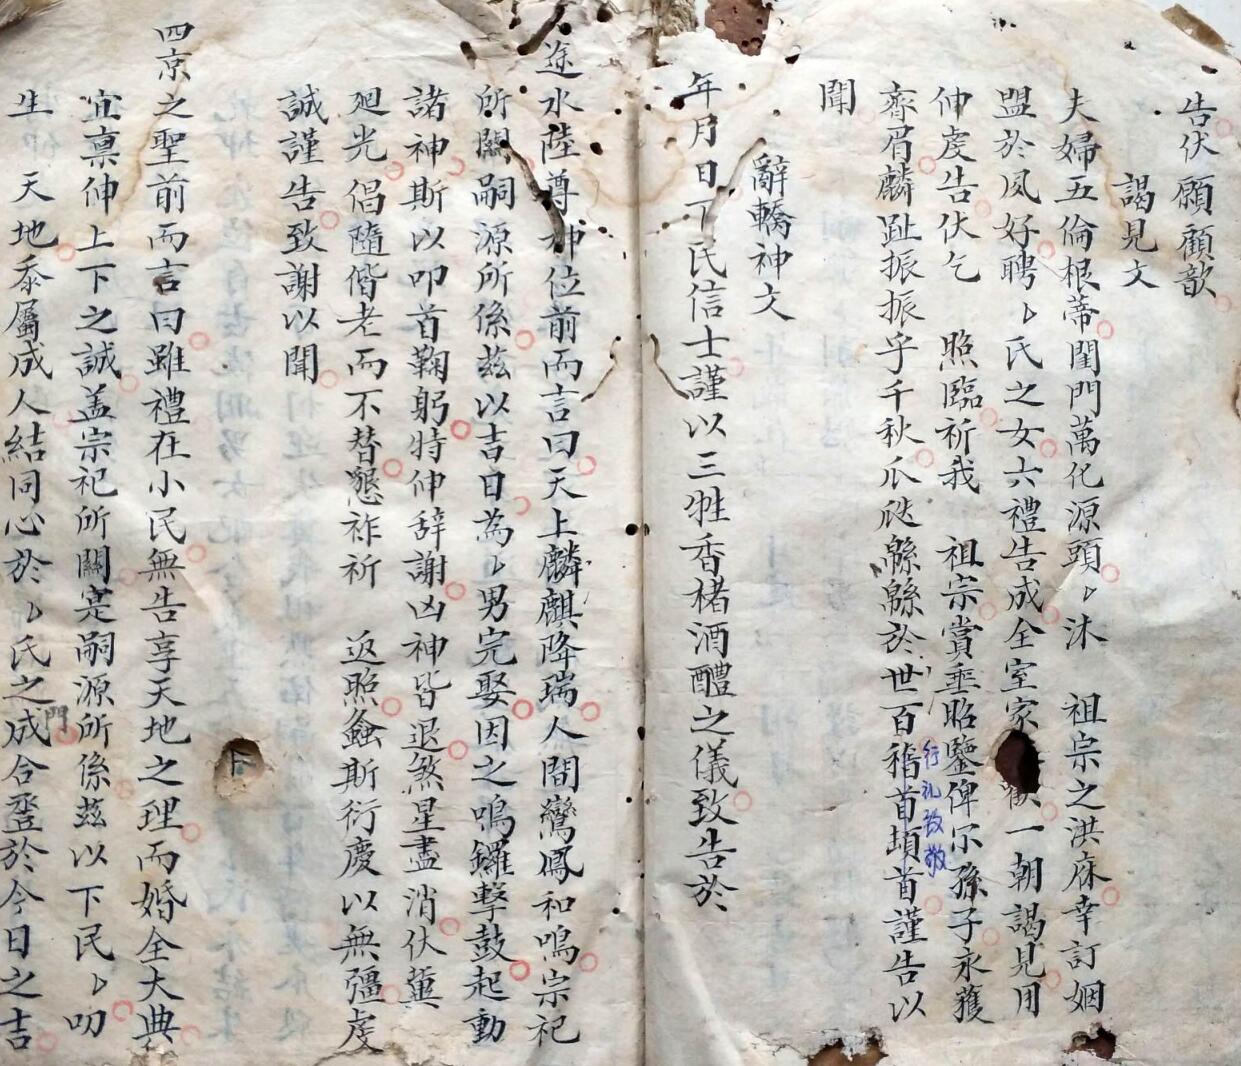 告伏願顧歆
謁見文
夫婦五倫根蒂閨門萬化源頭ㄣ沐 祖宗之洪庥幸訂姻
盟於夙好聘ㄣ氏之女六禮告成全室家 歡一朝謁見用
伸虔告伏乞 照臨祈我 祖宗賞垂昭鑒俾尔孫子永獲
齊眉麟趾振振乎千秋瓜瓞緜緜於世百稽首頓首謹告以
行礼致敬
聞
辭轎神文
年月日下民信士謹以三牲香楮酒醴之儀致告於
途水陸尊神位前而言曰天上麟麒降瑞人間鸞鳳和鳴宗祀
所關嗣源所係茲以吉日為ㄣ男完娶因之鳴鑼擊鼓起動
諸神斯以叩首鞠躬特伸辞謝凶神皆退煞星盡消伏冀
廻光倡隨偕老而不替懇祚祈 返照螽斯衍慶以無彊虔
誠謹告致謝以聞
四京之聖前而言曰雖禮在小民無告享天地之理而婚全大典
宜禀伸上下之誠盖宗祀所關寔嗣源所係茲以下民ㄣ叨
生 天地忝屬成人結同心於ㄣ氏之門成合巹於今日之吉